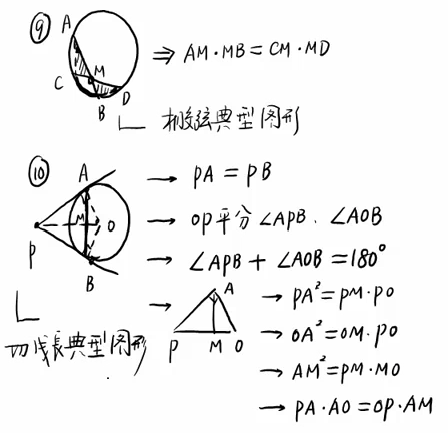 ⑨
A
M
C
B
D
⇒ AM·MB=CM·MD
相交弦典型图形
⑩
A
M
O
P
B
→ PA=PB
→ OP平分∠APB、∠AOB
→ ∠APB+∠AOB=180°
→
A
P M O
→ PA²=PM·PO
→ OA²=OM·PO
→ AM²=PM·MO
→ PA·AO=OP·AM
切线長典型图形